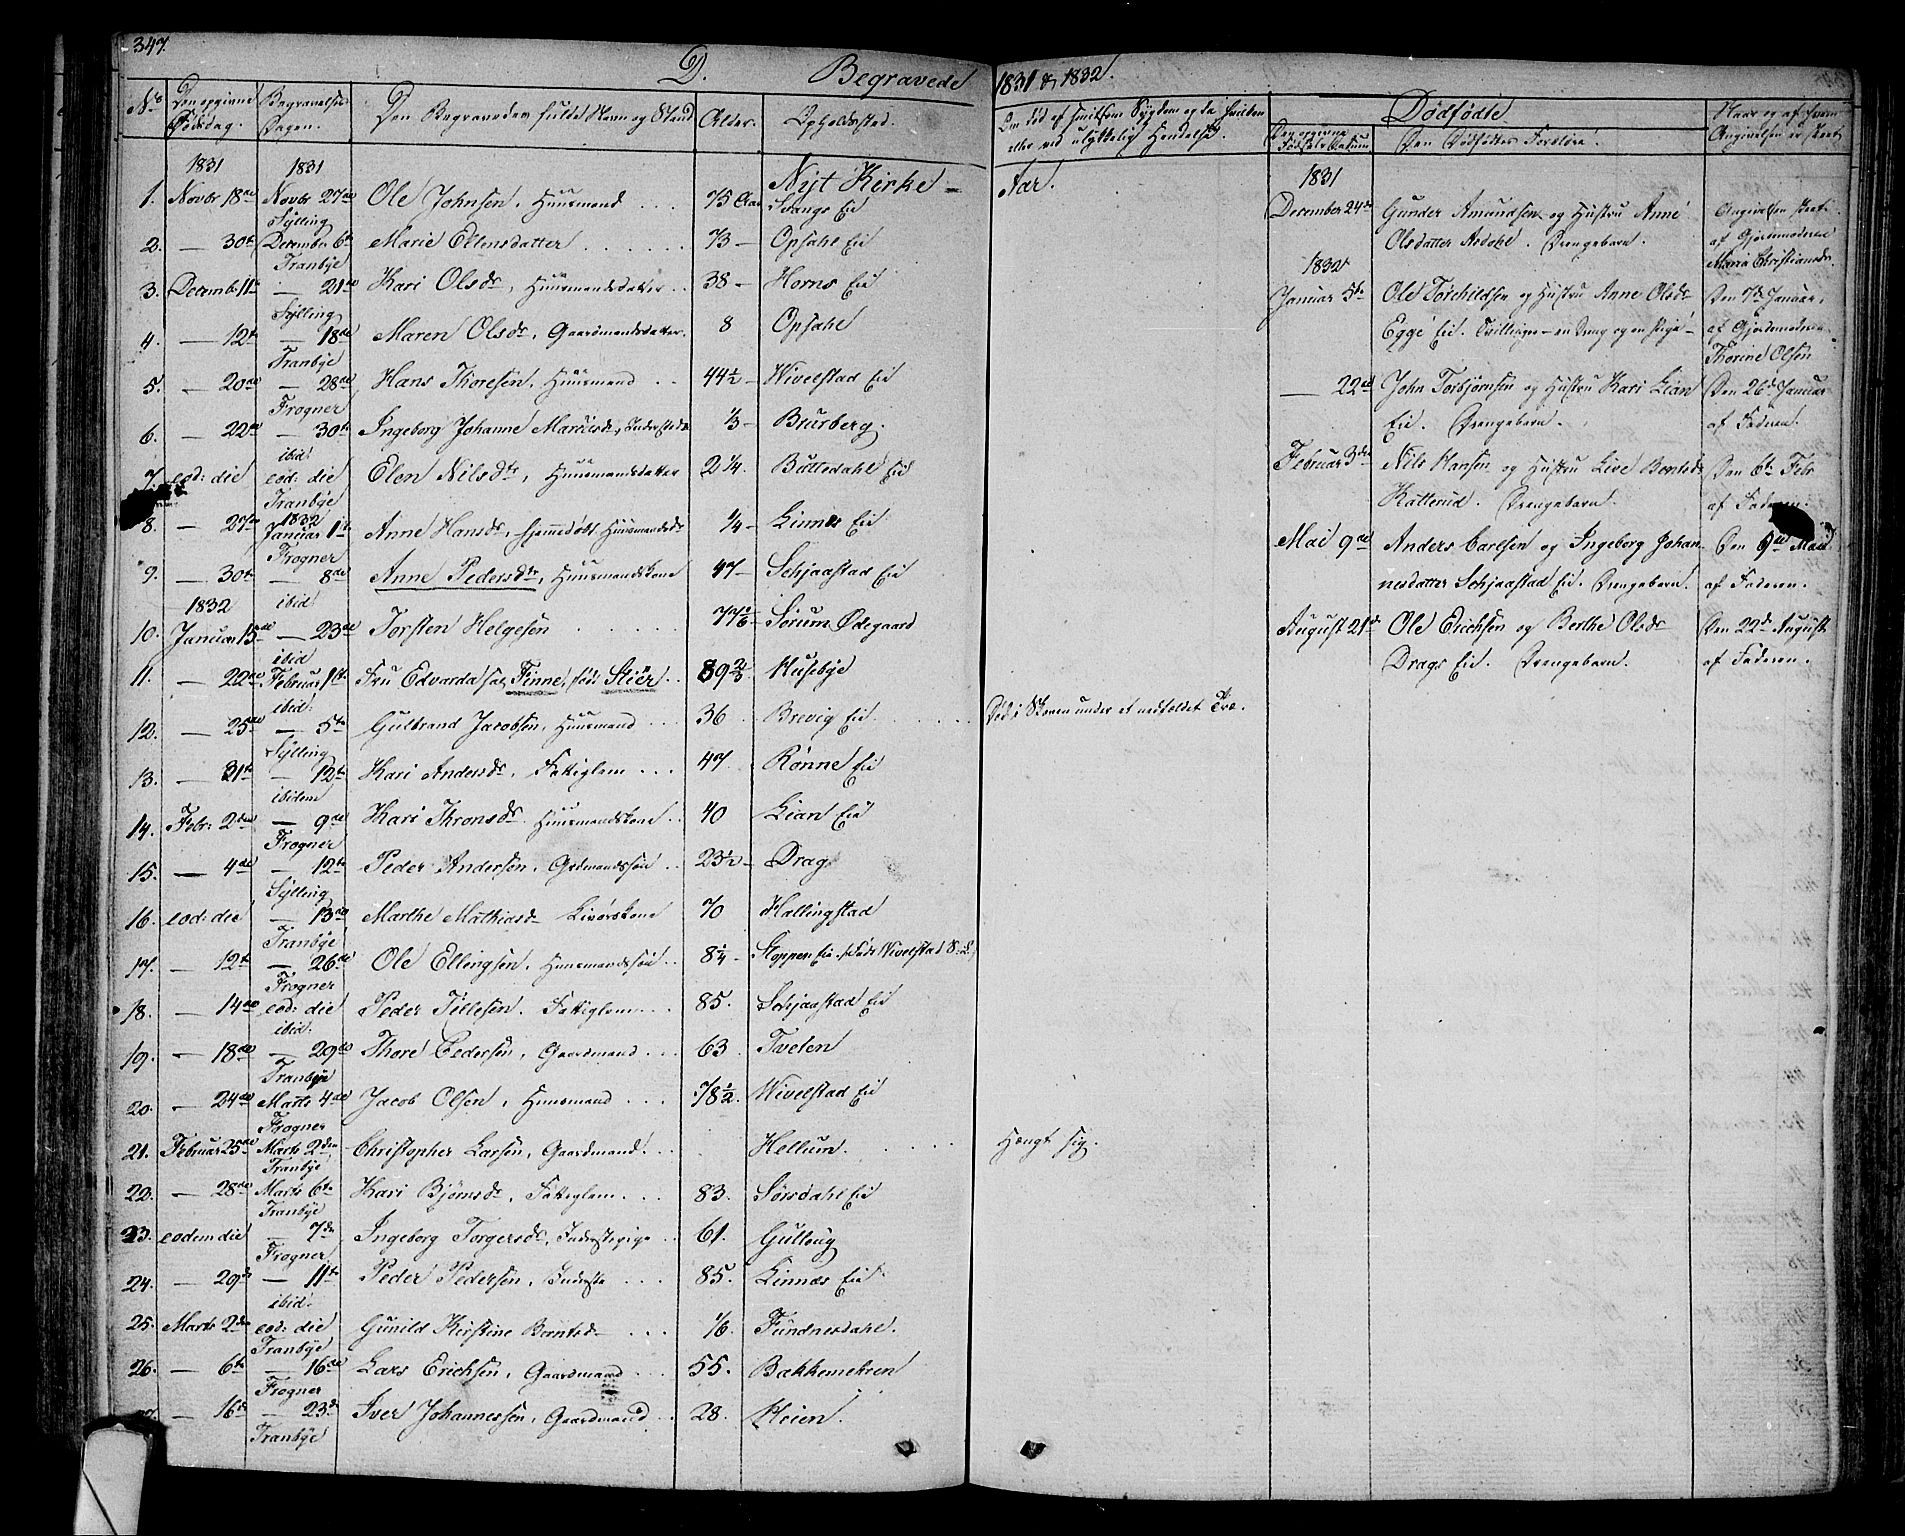 347.
D. Begravede 1831 & 1832.
No Den opgivne Dødsdag. Begravelses Dagen. Den Begravedes fulde Navn og Stand Alder. Opholdssted. Om død af smitsom Sygdom og da hvilken eller ved ulykkelig Hændelse. Dødfødte
Den opgivne Fødsels Datum Den Dødfødtes Forældre. Naar og af hvem Angivelsen er skeet
1831 1831 Nyt Kirke- Aar.
1. Novbr 18de Novbr 27de Sylling Ole Johnsen, Huusmand ... 75 Aar Svangs Eie
2. — 30te December 6te Tranbye Marie Ellensdatter ...... 73 — Opsahl Eie
3. Decembr 11te — 21de Sylling Kari Olsdr, Huusmandsdatter 38 — Horns Eie
4. — 12te — 18de Tranbye Maren Olsdr, Gaardmandsdatter. 8 Opsahl
5. — 20de — 28de Frogner Hans Thoresen, Huusmand .. 44½ — Wivelstad Eie
6. — 22de — 30te ibid: Ingeborg Johanne Mariisdr, Inderstedr ⅓ — Brurberg.
7. eod: die eod: die Tranbye Elen Nilsdtr, Huusmandsdatter 2¼ Buttedahl Eie
8. — 27de 1832 Januar 1te Frogner Anne Hansdr, hjemmedøbt Huusmandsdr ¼ — Linnes Eie
9. — 30te — 8de ibid: Anne Pedersdtr, Huusmandskone 47 — Schjaastad Eie
1832
10. Januar 15de — 23de ibid Torsten Helgesen ..... 77⅙ — Sørum Ødegaard
11. — 22de Februar 1te ibid: Fru Edvarda sal. Finne, født Stiër .. 89⅔ Husebye
12. — 25de — 5te Sylling Gulbrand Jacobsen, Huusmand ... 36 Brevig Eie. .... Død i Skoven under et nedfældet Træ.
13. — 31te — 12te ibidem Kari Andersdr, Fattiglem ... 47 Rønne Eie
14. Febr: 2den — 9de Frogner Kari Thronsdr Huusmandskone .. 40 Lian Eie
15. — 4de — 12te Sylling Peder Andersen, Grdmandssøn .. 23½ — Drag
16. eod: die — 13de Tranbye Marthe Mathiasdr Livørskone 70 Hallingstad
17. — 12te — 26de Frogner Ole Ellingsen, Huusmandssøn .. 8¼ — Stoppen Eie. /: Født Wivelstad
18. — 14de eod: die ibid: Peder Tillesen. Fattiglem ... 85. Schjaastad Eie
19. — 18de — 29de Tranbye Thore Pedersen, Gaardmand ... 63. Tveten
20. — 24de Marts 4de Frogner Jacob Olsen, Huusmand ... 78½. Wivelstad Eie
21. Februar 25de Marts 2den Tranbye Christopher Larsen, Gaardmand. .. Hellum. .... Hængt sig.
22. — 28de Marts 6te Tranbye Kari Bjørnsdr, Fattiglem ... 83. Sørsdahl Eie
23. eodem die — 7de Frogner Ingeborg Torgersdr, Inderstepige .. 61. Gulloug
24. — 29de — 11te ibid: Peder Pedersen, Inderste ... 85. Linnæs Eie
25. Marts 2den eod: die Tranbye Gunild Kirstine Berntsdr ... ⅙. Fundnesdahl.
26. — 6te — 16de Frogner Lars Erichsen, Gaardmand ... 55. Bakkemehren
27. — 16de — 23de Tranbye Iver Johannessen, Gaardmand .. 28. Heien.
1831
December 24de Gunder Amundsen og Hustru Anne Angivelsen skeet
Olsdatter Asdøhl. Drengebarn. af Gjordemoderen
1832 Maria Christiansdr.
Januar 5te Ole Torchildsen og Hustru Anne Olsdr Den 7de Januar,
Egge Eie. Tvillinger — en Dreng og en Pige — af Gjordemoderen
Thorine Olsen
— 22de John Torbjørnsen og Hustru Kari Lian Den 26de Januar
Eie. Drengebarn. af Faderen.
Februar 3die Nils Hansen og Hustru Live Berntsdr Den 6te Febr
Katterud. Drengebarn. af Faderen.
Mai 9de Anders Carlsen og Ingeborg Johan- Den 9de Mai
nesdatter Schjaastad Eie. Drengebarn. af Faderen.
August 21de Ole Erichsen og Berthe Olsdr Den 22de August
Drags Eie. Drengebarn. af Faderen.